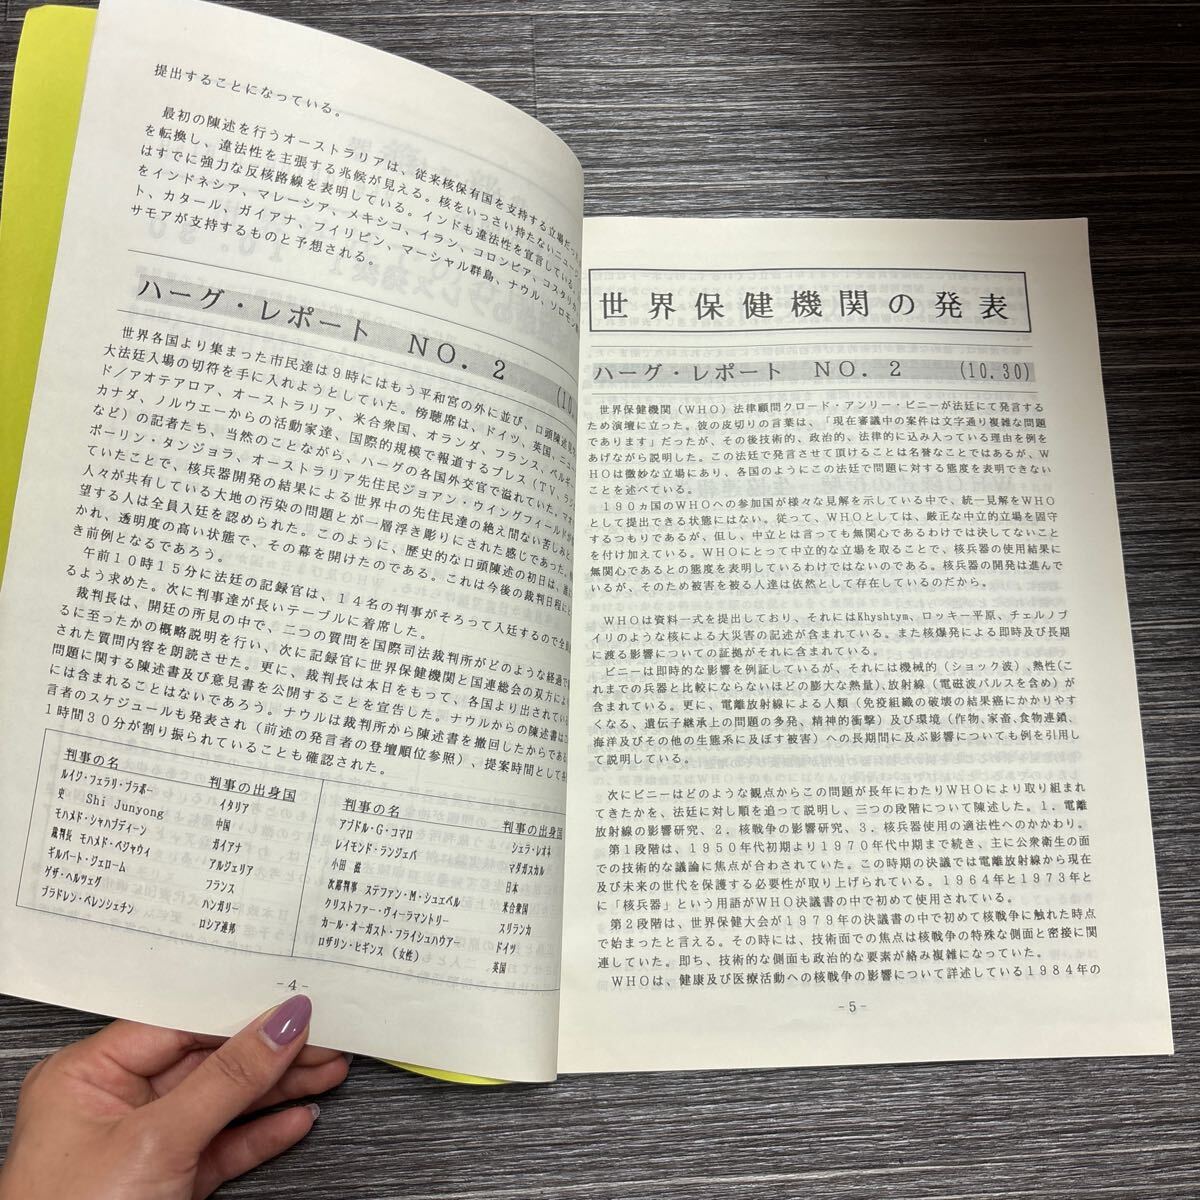 提出することになっている。
最初の陳述を行うオーストラリアは、従来核保有国を支持する立場だっ
を転換し、違法性を主張する兆候が見える。核をいっさい持たないニュージ
はすでに強力な反核路線を表明している。インドも違法性を宣言している
をインドネシア、マレーシア、メキシコ、イラン、コロンビア、コスタリカ
ト、カタール、ガイアナ、フィリピン、マーシャル群島、ナウル、ソロモン
サモアが支持するものと予想される。
ハーグ・レポート NO.2 (10.
世界各国より集まった市民達は9時にはもう平和宮の外に並び、口頭陳述
大法廷入場の切符を手に入れようとしていた。傍聴席は、ドイツ、英国、ニュー
ド/アオテアロア、オーストラリア、米合衆国、オランダ、フランス、ベルギー
カナダ、ノルウエーからの活動家達、国際的規模で報道するプレス(TV、ラジ
など)の記者たち、当然のことながら、ハーグの各国外交官で溢れていた。
ポーリン・タンジョラ、オーストラリア先住民ジョアン・ウイングフィールドが
ていたことで、核兵器開発の結果による世界中の先住民達の絶え間ない苦しみと
人々が共有している大地の汚染の問題とが一層浮き彫りにされた感じであった。
望する人は全員入廷を認められた。このように、歴史的な口頭陳述の初日は、
かれ、透明度の高い状態で、その幕を開けたのである。これは今後の裁判日程にと
き前例となるであろう。
午前10時15分に法廷の記録官は、14名の判事がそろって入廷するので全員
るよう求めた。次に判事達が長いテーブルに着席した。
裁判長は、開廷の所見の中で、二つの質問を国際司法裁判所がどのような経過で
るに至ったかの概略説明を行い、次に記録官に世界保健機関と国連総会の双方によ
された質問内容を朗読させた。更に、裁判長は本日をもって、各国より出されている
問題に関する陳述書及び意見書を公開することを宣告した。ナウルからの陳述書は
には含まれることはないであろう。ナウルは裁判所から陳述書を撤回したからである
言者のスケジュールも発表され(前述の発言者の登壇順位参照)、提案時間として各
1時間30分が割り振られていることも確認された。
判事の名 判事の出身国
ルイジ・フェラリ・ブラボー イタリア
史 Shi Junyong 中国
モハメド・シャハブディーン ガイアナ
裁判長 モハメド・ベジャウィ アルジェリア
ギルバート・ジェローム フランス
ゲザ・ヘルツェグ ハンガリー
ブラドレン・ベレンシェチン ロシア連邦
判事の名 判事の出身国
アブドル・G・コマロ シェラ・レオネ
レイモンド・ランジェバ マダガスカル
小田 滋 日本
次席判事 ステファン・M・シュエベル 米合衆国
クリストファー・ヴィーラマントリー スリランカ
カール・オーガスト・フライシュハウアー ドイツ
ロザリン・ヒギンス (女性) 英国
- 4 -
世界保健機関の発表
ハーグ・レポート NO.2 (10.30)
世界保健機関(WHO)法律顧問クロード・アンリー・ビニーが法廷にて発言する
ため演壇に立った。彼の皮切りの言葉は、「現在審議中の案件は文字通り複雑な問題
であります」だったが、その後技術的、政治的、法律的に込み入っている理由を例を
あげながら説明した。この法廷で発言させて頂けることは名誉なことではあるが、W
HOは微妙な立場にあり、各国のようにこの法廷で問題に対する態度を表明できない
ことを述べている。
190カ国のWHOへの参加国が様々な見解を示している中で、統一見解をWHO
として提出できる状態にはない。従って、WHOとしては、厳正な中立的立場を固守
するつもりであるが、但し、中立とは言っても無関心であるわけでは決してないこと
を付け加えている。WHOにとって中立的な立場を取ることで、核兵器の使用結果に
無関心であるとの態度を表明しているわけではないのである。核兵器の開発は進んで
いるが、そのため被害を被る人達は依然として存在しているのだから。
WHOは資料一式を提出しており、それにはKhyshtym、ロッキー平原、チェルノブ
イリのような核による大災害の記述が含まれている。また核爆発による即時及び長期
に渡る影響についての証拠がそれに含まれている。
ビニーは即時的な影響を例証しているが、それには機械的(ショック波)、熱性(こ
れまでの兵器と比較にならないほどの膨大な熱量)、放射線(電磁波パルスを含め)が
含まれている。更に、電離放射線による人類(免疫組織の破壊の結果癌にかかりやす
くなる、遺伝子継承上の問題の多発、精神的衝撃)及び環境(作物、家畜、食物連鎖、
海洋及びその他の生態系に及ぼす被害)への長期間に及ぶ影響についても例を引用し
て説明している。
次にビニーはどのような観点からこの問題が長年にわたりWHOにより取り組まれ
てきたかを、法廷に対し順を追って説明し、三つの段階について陳述した。1.電離
放射線の影響研究、2.核戦争の影響研究、3.核兵器使用の適法性へのかかわり。
第1段階は、1950年代初期より1970年代中期まで続き、主に公衆衛生の面
での技術的な議論に焦点が合わされていた。この時期の決議では電離放射線から現在
及び未来の世代を保護する必要性が取り上げられている。1964年と1973年と
に「核兵器」という用語がWHO決議書の中で初めて使用されている。
第2段階は、世界保健大会が1979年の決議書の中で初めて核戦争に触れた時点
で始まったと言える。その時には、技術面での焦点は核戦争の特殊な側面と密接に関
連していた。即ち、技術的な側面も政治的な要素が絡み複雑になっていた。
WHOは、健康及び医療活動への核戦争の影響について詳述している1984年の
- 5 -